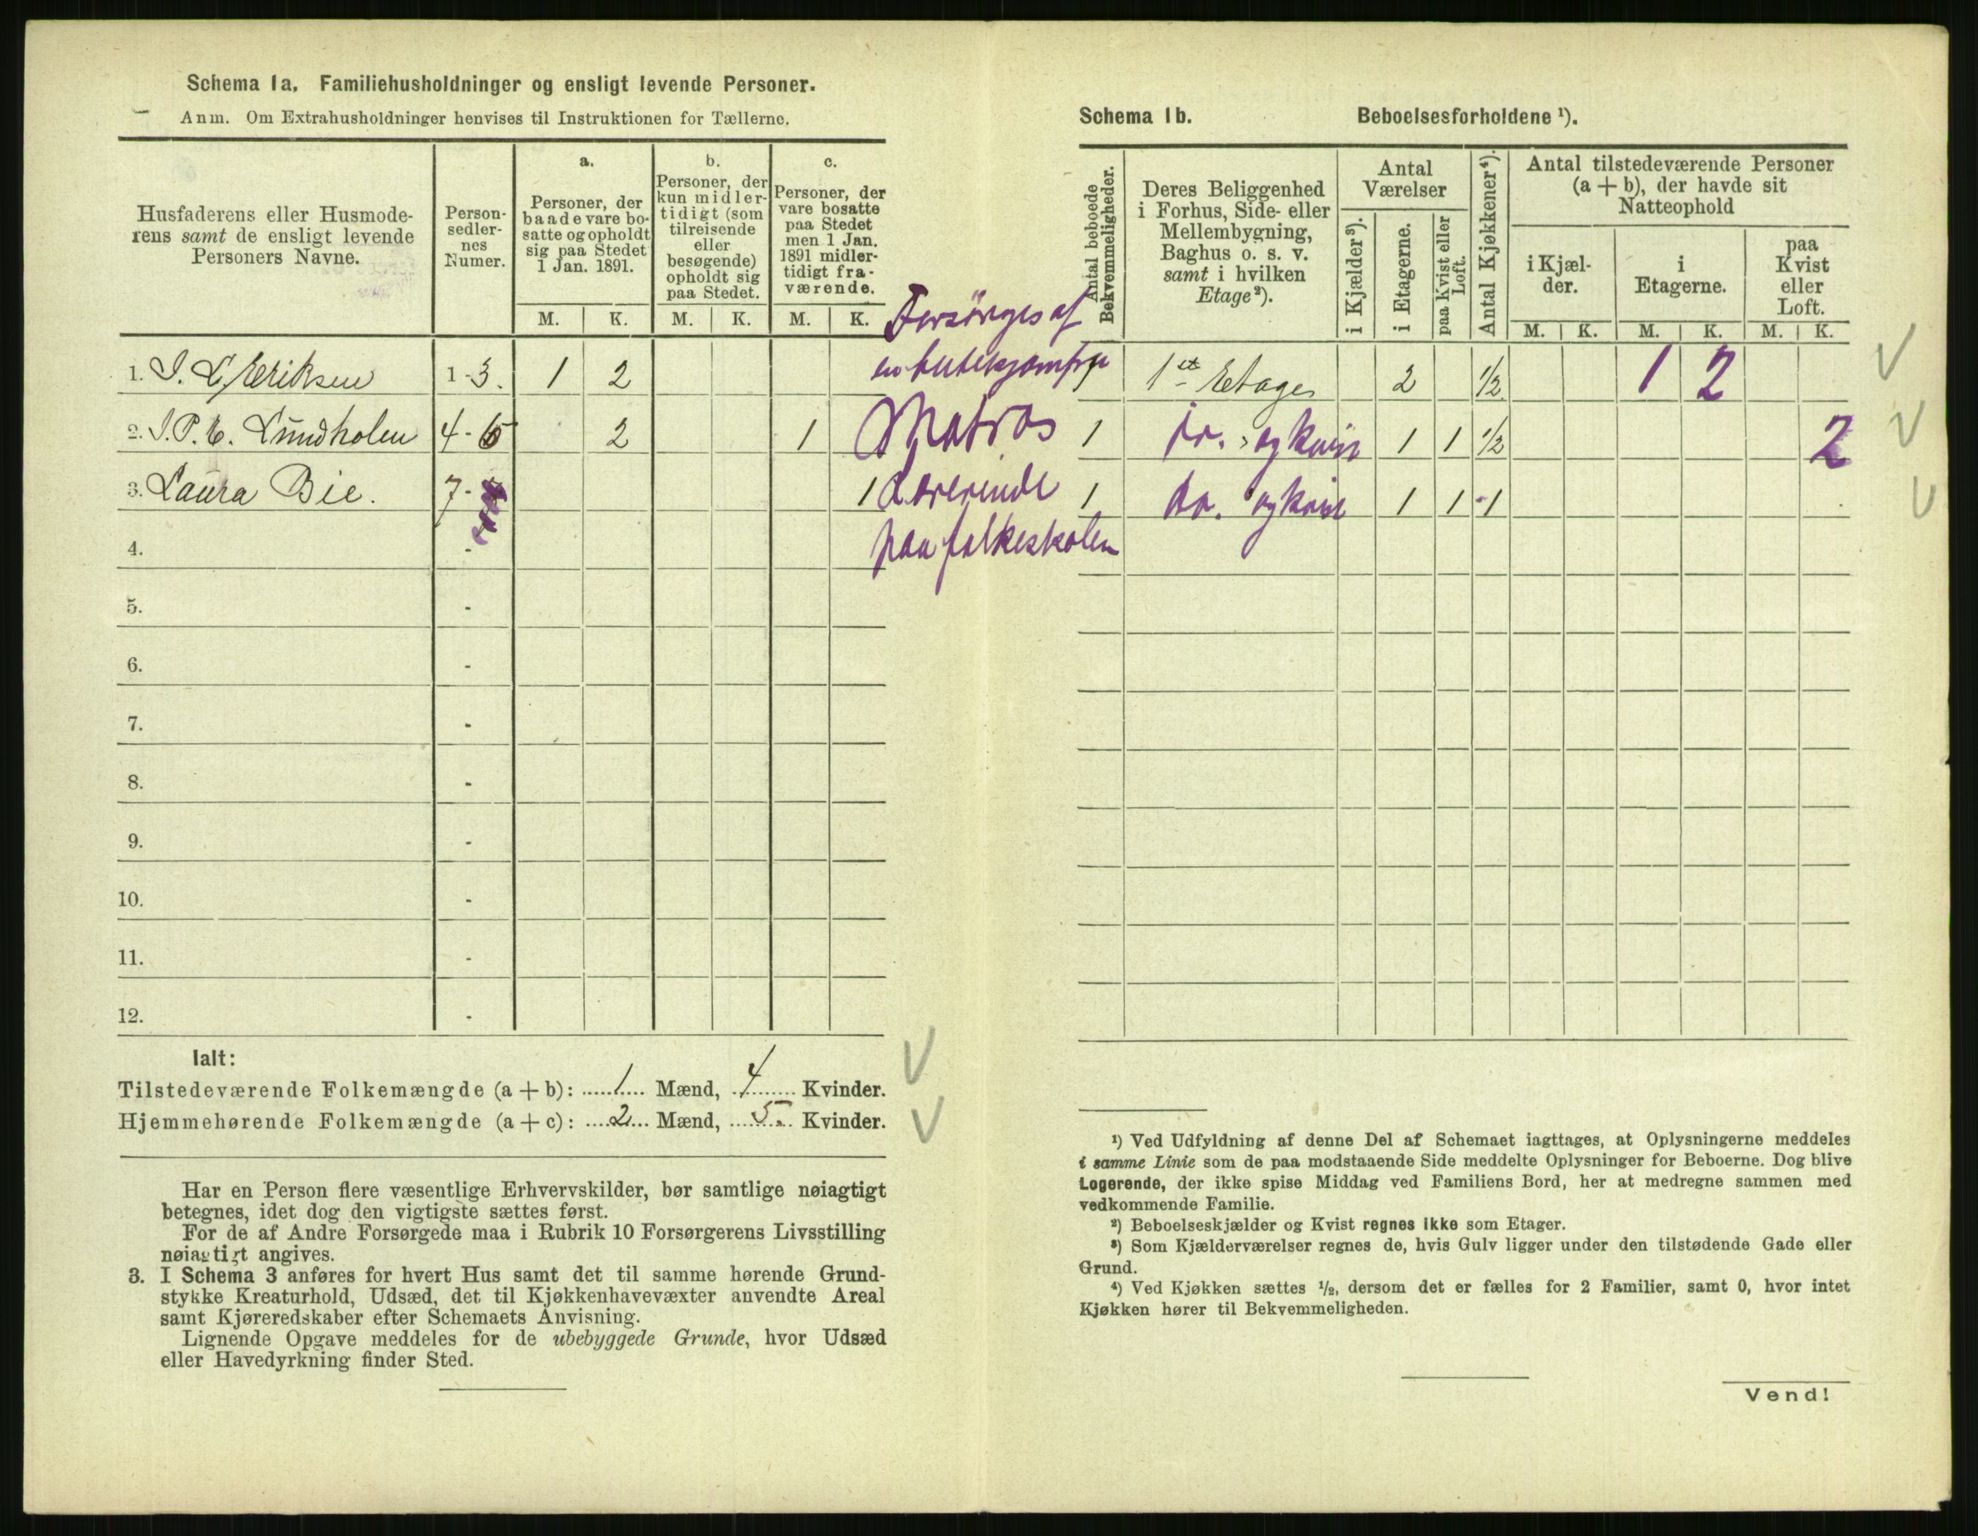 Schema 1a. Familiehusholdninger og ensligt levende Personer.
Anm. Om Extrahusholdninger henvises til Instruktionen for Tællerne.
Husfaderens eller Husmode-
rens samt de ensligt levende
Personers Navne.
Person-
sedler-
nes
Numer.
a.
Personer, der
baade vare bo-
satte og opholdt
sig paa Stedet
1 Jan. 1891.
b.
Personer, der
kun midler-
tidigt (som
tilreisende
eller
besøgende)
opholdt sig
paa Stedet.
c.
Personer, der
vare bosatte
paa Stedet
men 1 Jan.
1891 midler-
tidigt fra-
værende.
M. K. M. K. M. K.
Forsörges af
en
1. Eriksen 1-3. 1 2
2. J. P. Lundholm 4- 2 1 Matros
3. Laura Bie. 7- 1 Lærerinde
paa folkeskolen
4. -
5. -
6. -
7. -
8. -
9. -
10. -
11. -
12. -
Ialt:
Tilstedeværende Folkemængde (a + b): 1 Mænd, 4 Kvinder.
Hjemmehørende Folkemængde (a + c): 2 Mænd, 5. Kvinder.
Har en Person flere væsentlige Erhvervskilder, bør samtlige nøiagtigt
betegnes, idet dog den vigtigste sættes først.
For de af Andre Forsørgede maa i Rubrik 10 Forsørgerens Livsstilling
nøiagtigt angives.
3. I Schema 3 anføres for hvert Hus samt det til samme hørende Grund-
stykke Kreaturhold, Udsæd, det til Kjøkkenhavevæxter anvendte Areal
samt Kjøreredskaber efter Schemaets Anvisning.
Lignende Opgave meddeles for de ubebyggede Grunde, hvor Udsæd
eller Havedyrkning finder Sted.
Schema 1b. Beboelsesforholdene ¹).
Antal beboede
Bekvemmeligheder.
Deres Beliggenhed
i Forhus, Side- eller
Mellembygning,
Baghus o. s. v.
samt i hvilken
Etage²).
Antal
Værelser
i Kjælder³).
i Etagerne.
paa Kvist eller
Loft.
Antal Kjøkkener⁴).
Antal tilstedeværende Personer
(a + b), der havde sit
Natteophold
i Kjæl-
der.
i
Etagerne.
paa
Kvist
eller
Loft.
M. K. M. K. M. K.
1st Etage 2 1/2 1 2
1 do. og kvist 1 1 1/2 2
1 do. og kvist 1 1 1
¹) Ved Udfyldning af denne Del af Schemaet iagttages, at Oplysningerne meddeles
i samme Linie som de paa modstaaende Side meddelte Oplysninger for Beboerne. Dog blive
Logerende, der ikke spise Middag ved Familiens Bord, her at medregne sammen med
vedkommende Familie.
²) Beboelseskjælder og Kvist regnes ikke som Etager.
³) Som Kjælderværelser regnes de, hvis Gulv ligger under den tilstødende Gade eller
Grund.
⁴) Ved Kjøkken sættes ½, dersom det er fælles for 2 Familier, samt 0, hvor intet
Kjøkken hører til Bekvemmeligheden.
Vend!